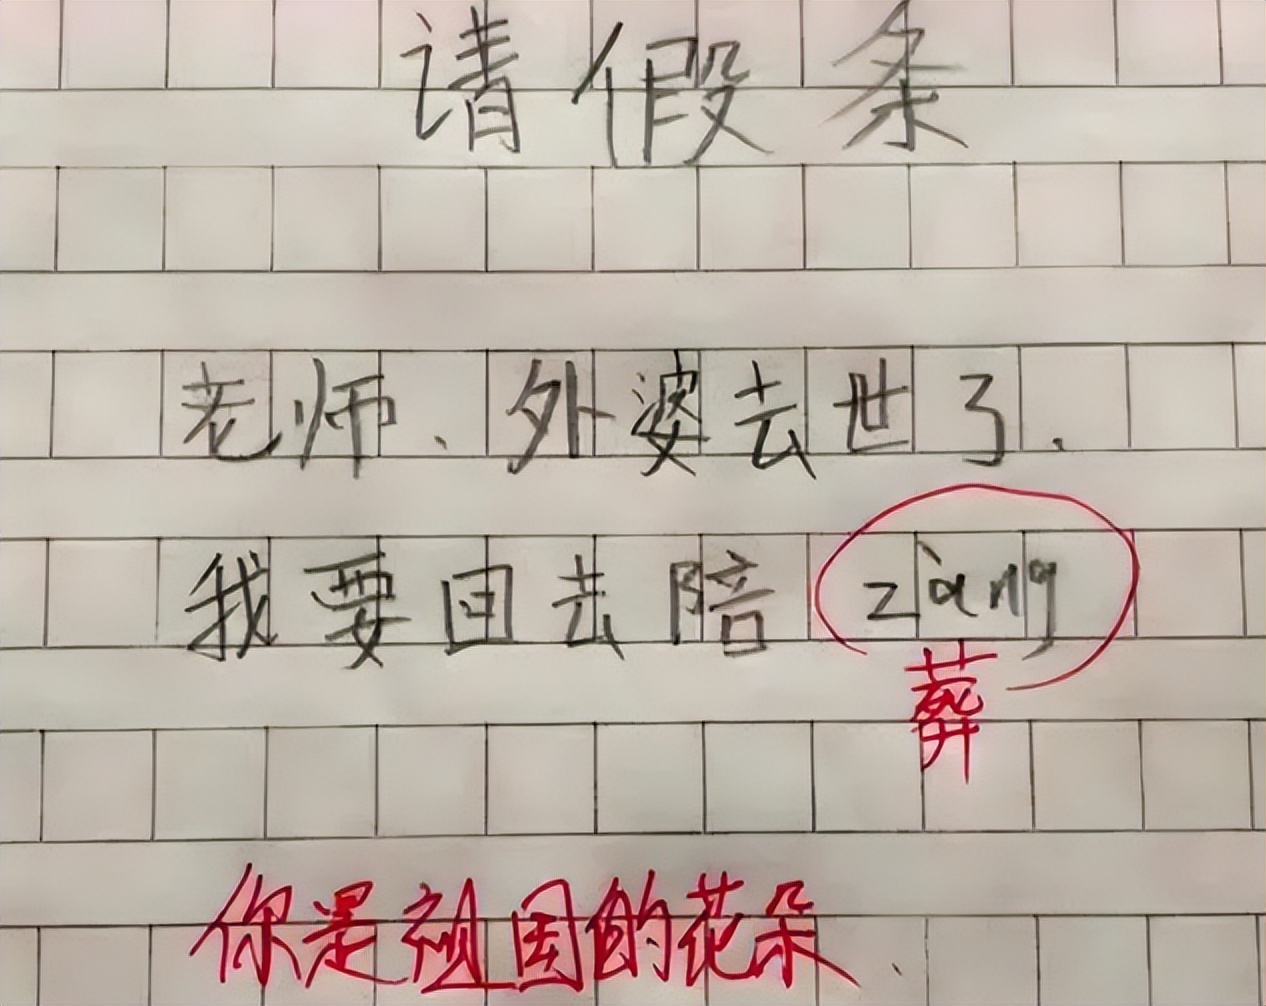 请假条
老师、外婆去世了.
我要回去陪zàng
葬
你是祖国的花朵、